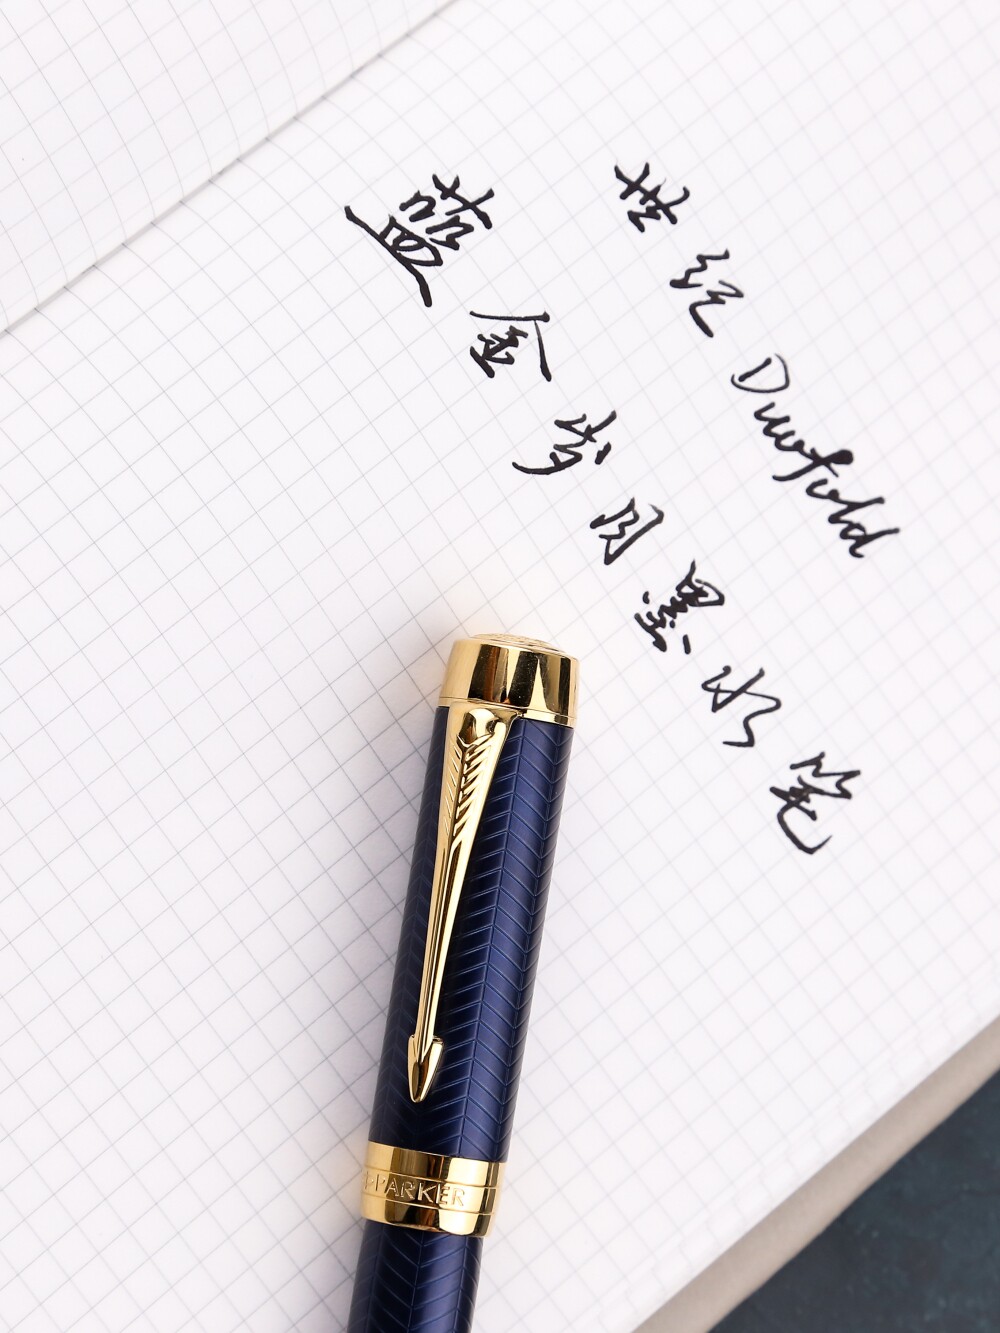 世纪 Duofold
蓝金岁月墨水笔
PARKER